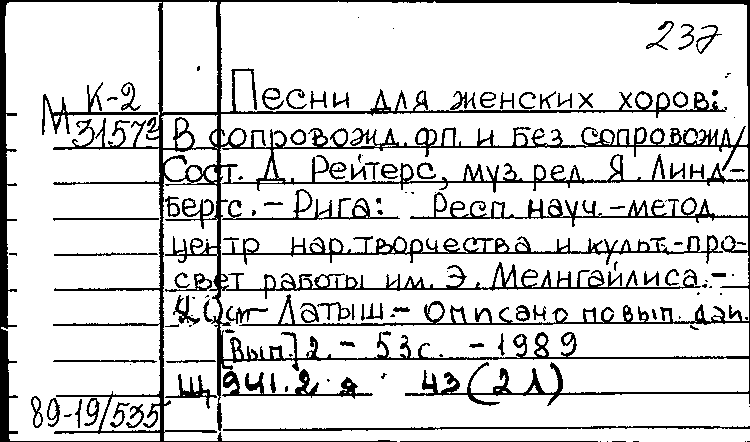 237
К-2
М 31572
Песни для женских хоров:
В сопровожд. фп. и без сопровожд/
Сост. Д. Рейтерс, муз. ред. Я. Линд-
бергс. - Рига: Респ. науч.-метод
центр нар. творчества и культ.-про-
свет работы им. Э. Мелнгайлиса. -
Латыш. - Описано по вып. дан.
[Вып.] 2. - 53 с. - 1989
Щ 941.2 я 43 (2 Л)
89-19/535